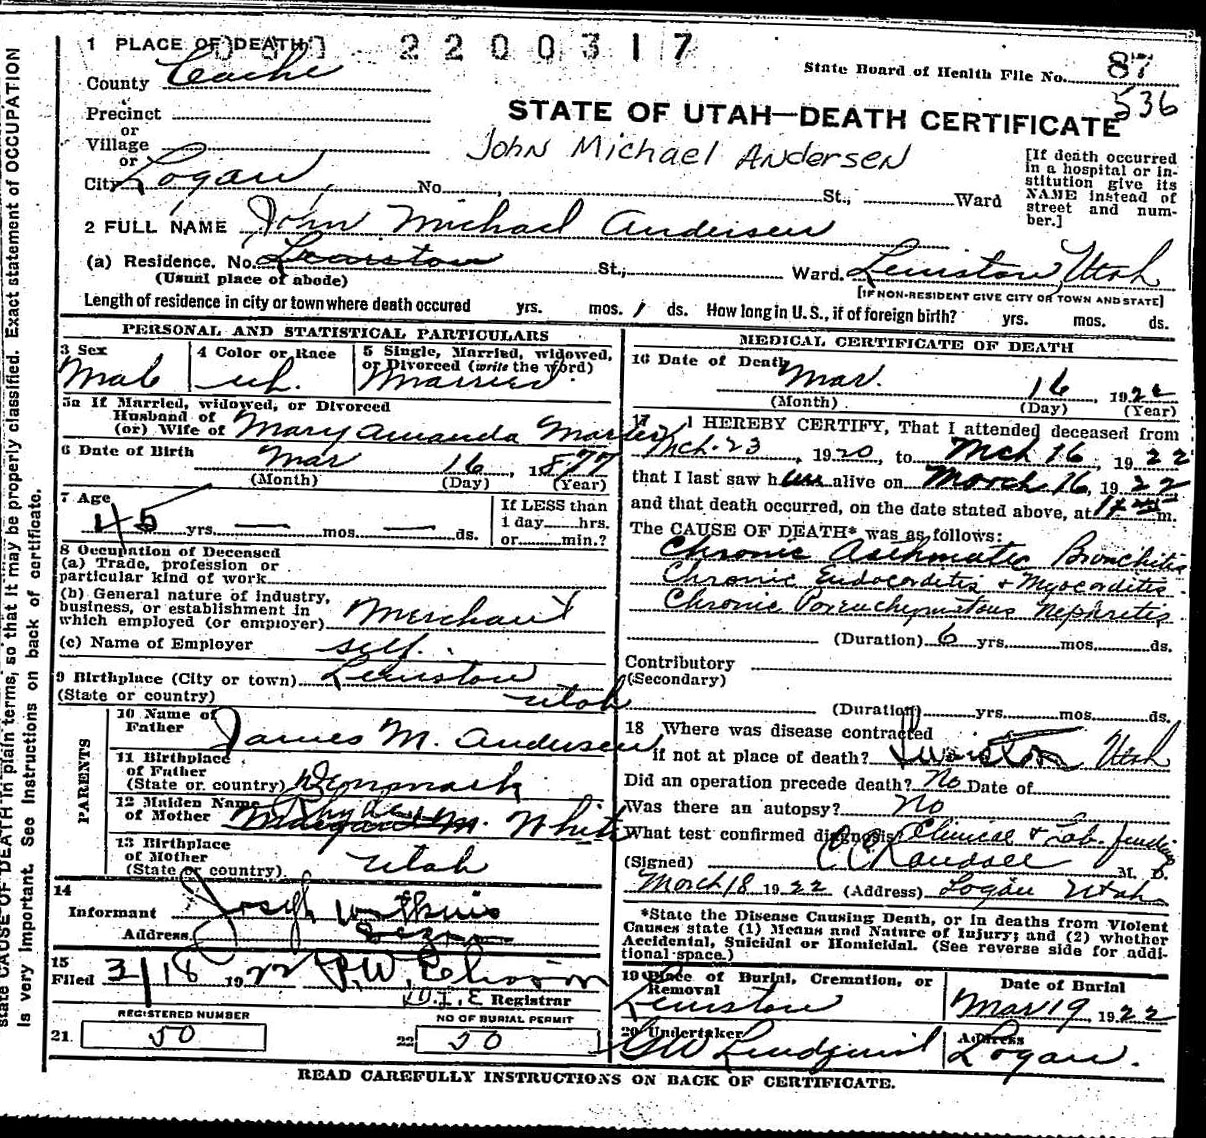 1 PLACE OF DEATH 2200317
State Board of Health File No. 87
536
County Cache
Precinct
or
Village
or
City Logan, No. , St., Ward
STATE OF UTAH—DEATH CERTIFICATE
John Michael Andersen
[If death occurred
in a hospital or in-
stitution give its
NAME instead of
street and num-
ber.]
2 FULL NAME John Michael Andersen
(a) Residence. No. Lewiston St., Ward. Lewiston, Utah
(Usual place of abode)
[IF NON-RESIDENT GIVE CITY OR TOWN AND STATE]
Length of residence in city or town where death occured yrs. mos. 1 ds. How long in U. S., if of foreign birth? yrs. mos. ds.
PERSONAL AND STATISTICAL PARTICULARS
3 Sex
Male
4 Color or Race
wh.
5 Single, Married, widowed,
or Divorced (write the word)
Married
5a If Married, widowed, or Divorced
Husband of
(or) Wife of Mary Amanda
6 Date of Birth Mar 16, 1877
(Month) (Day) (Year)
7 Age
45 yrs. — mos. — ds.
If LESS than
1 day hrs.
or min.?
8 Occupation of Deceased
(a) Trade, profession or
particular kind of work
(b) General nature of industry,
business, or establishment in
which employed (or employer) Merchant
(c) Name of Employer self.
9 Birthplace (City or town) Lewiston
(State or country) Utah
PARENTS
10 Name of
Father James M. Andersen
11 Birthplace
of Father
(State or country) Denmark
12 Maiden Name
of Mother M. White
13 Birthplace
of Mother
(State or country). Utah
14
Informant Joseph Watkins
Address.
15
Filed 3/18 1922 P.W.
Registrar
REGISTERED NUMBER
21. 50
NO OF BURIAL PERMIT
22 50
MEDICAL CERTIFICATE OF DEATH
16 Date of Death Mar. 16, 1922
(Month) (Day) (Year)
17 I HEREBY CERTIFY, That I attended deceased from
Mch. 23, 1920, to Mch 16, 1922
that I last saw him alive on March 16, 1922
and that death occurred, on the date stated above, at m.
The CAUSE OF DEATH* was as follows:
Chronic Asthmatic Bronchitis
Chronic Endocarditis + Myocarditis
Chronic Parenchymatous Nephritis
(Duration) 6 yrs. mos. ds.
Contributory
(Secondary)
(Duration) yrs. mos. ds.
18 Where was disease contracted
if not at place of death? Lewiston Utah
Did an operation precede death? No Date of
Was there an autopsy? No
What test confirmed diagnosis Clinical + Lab. findings
(Signed) M. D.
March 18 1922 (Address) Logan Utah
*State the Disease Causing Death, or in deaths from Violent
Causes state (1) Means and Nature of Injury; and (2) whether
Accidental, Suicidal or Homicidal. (See reverse side for addi-
tional space.)
19 Place of Burial, Cremation, or
Removal
Lewiston
Date of Burial
Mar 19, 1922
20 Undertaker
Address
Logan.
READ CAREFULLY INSTRUCTIONS ON BACK OF CERTIFICATE.
state CAUSE OF DEATH in plain terms, so that it may be properly classified. Exact statement of OCCUPATION
is very important. See instructions on back of certificate.